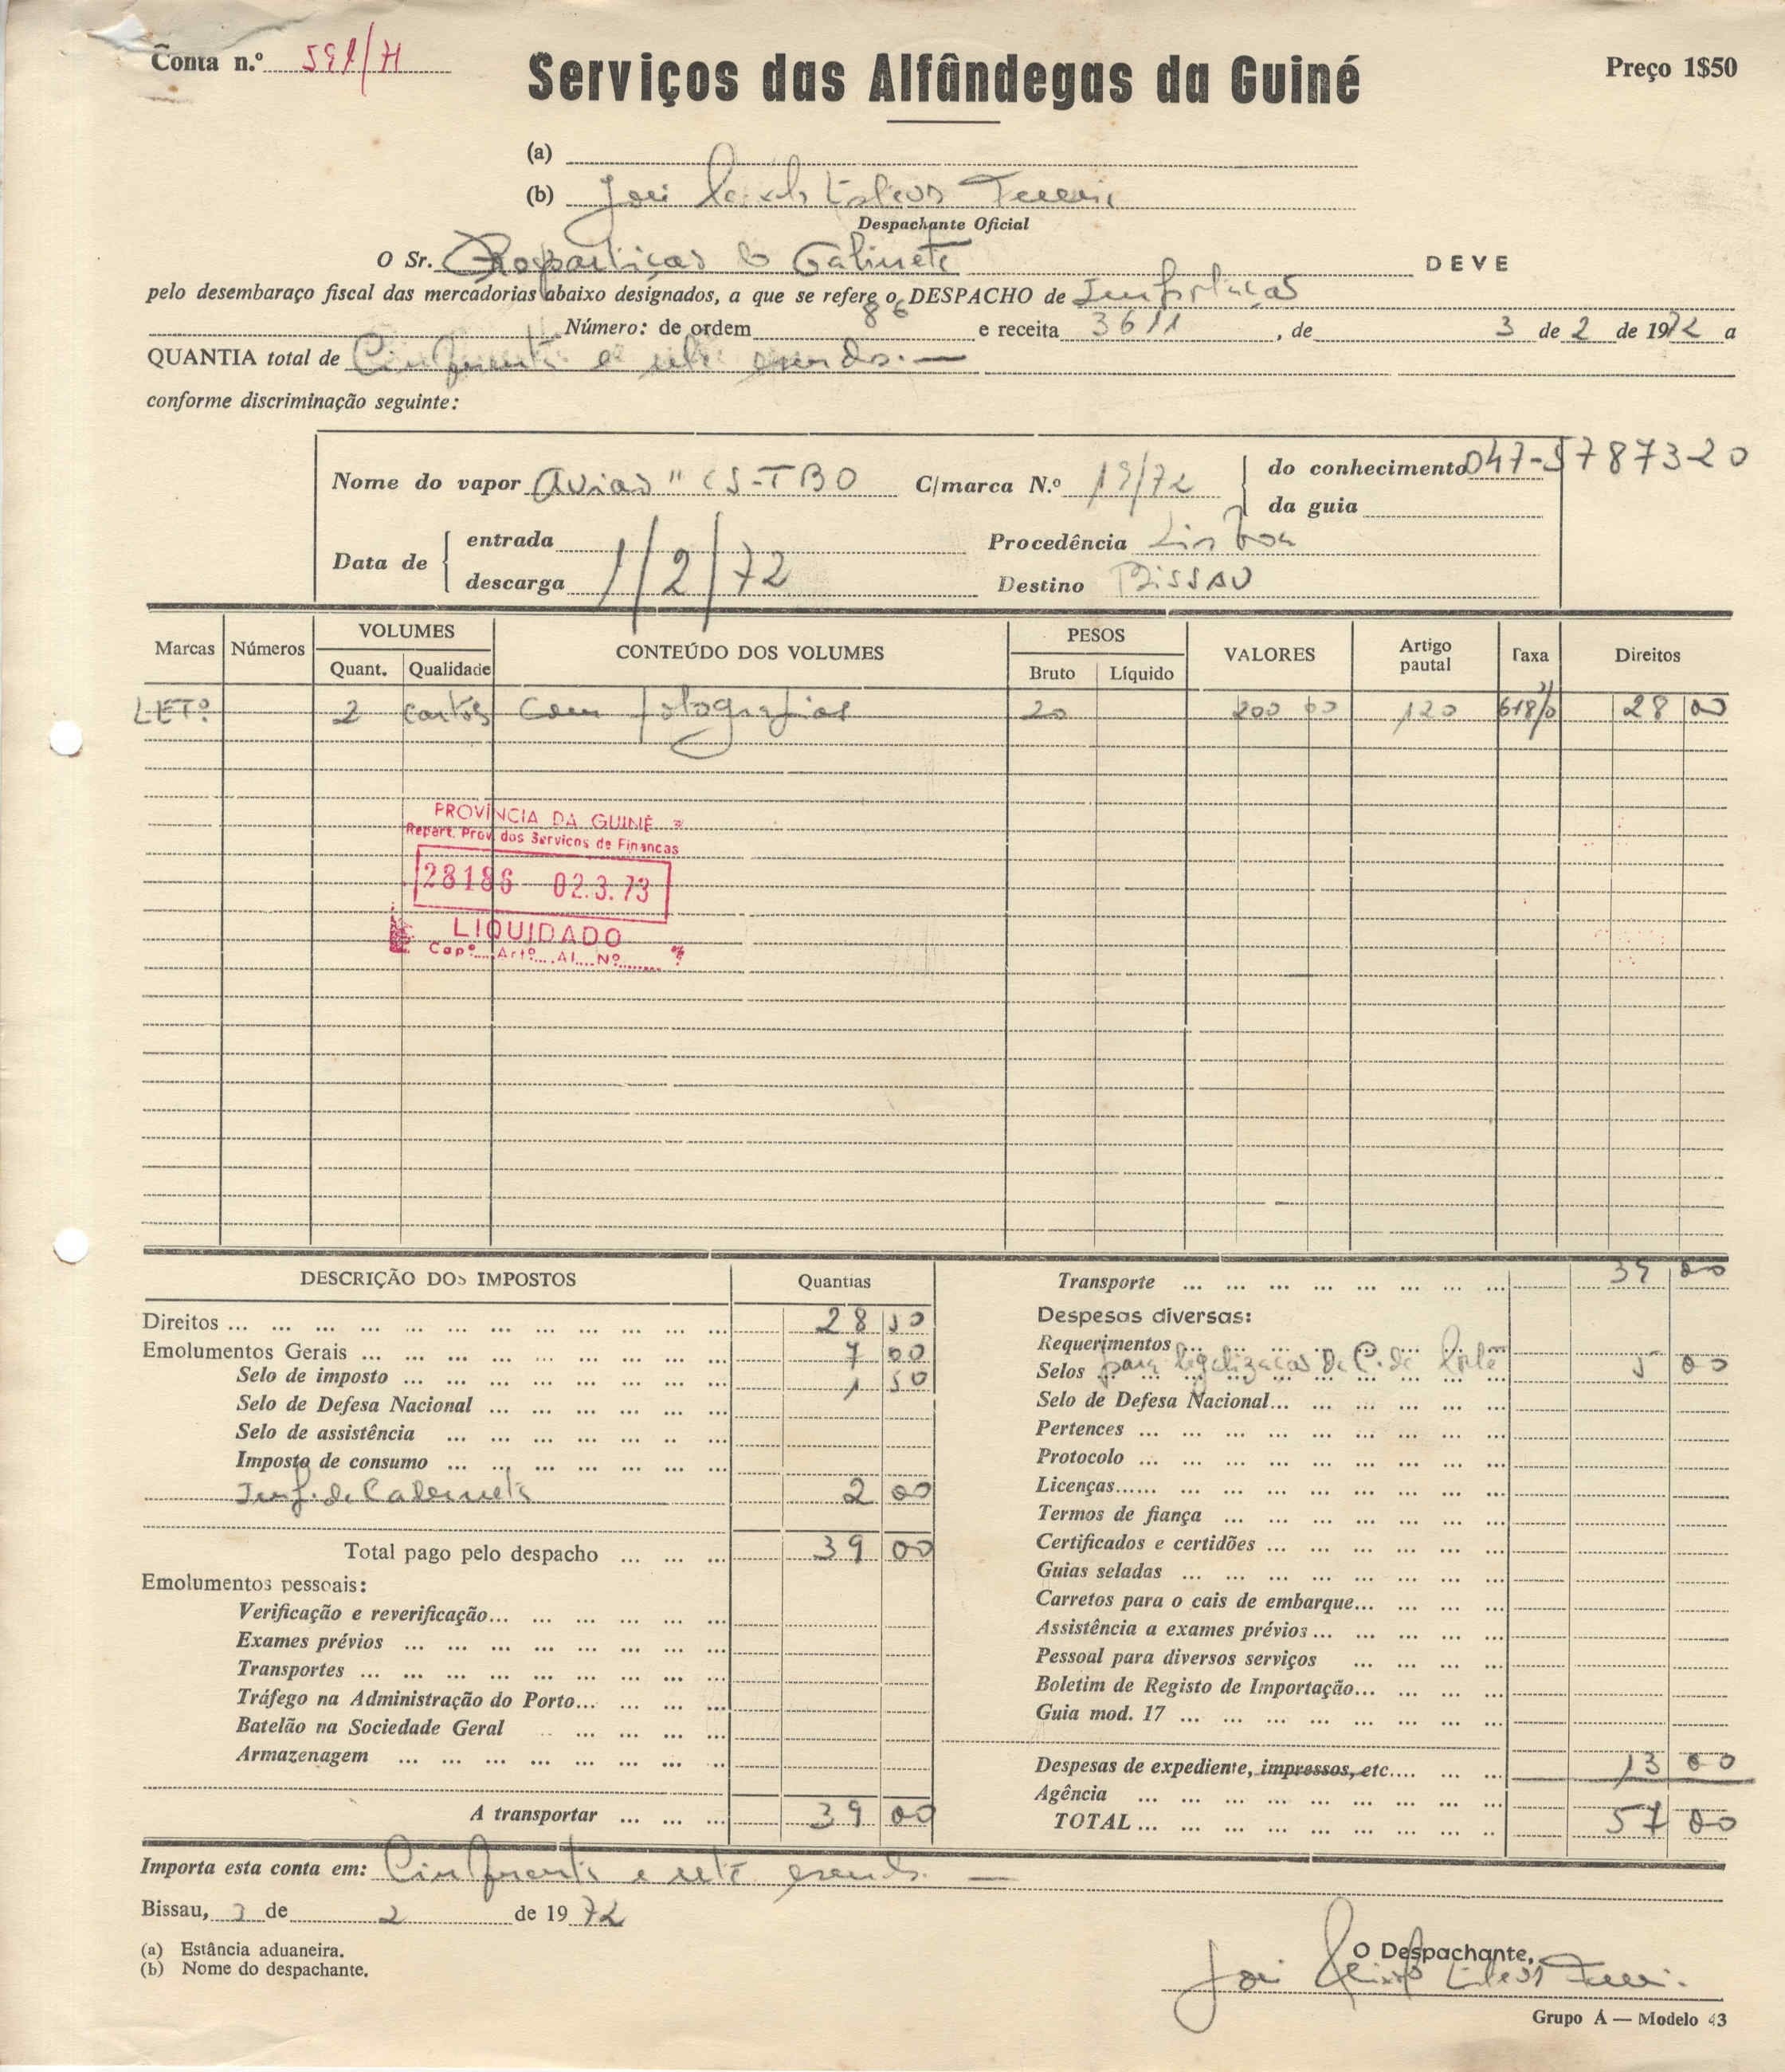 Conta n.º
Serviços das Alfândegas da Guiné
Preço 1$50
(a)
(b) José Esteves
Despachante Oficial
O Sr. Gabinete DEVE
pelo desembaraço fiscal das mercadorias abaixo designados, a que se refere o DESPACHO de Importação
Número: de ordem 86 e receita 3611, de 3 de 2 de 1972 a
QUANTIA total de Cinquenta e sete escudos.—
conforme discriminação seguinte:
Nome do vapor Avião "CS-TBO C/marca N.º 19/72 do conhecimento 047-57873-20
da guia
Data de entrada Procedência Lisboa
descarga 1/2/72 Destino Bissau
Marcas Números VOLUMES CONTEÚDO DOS VOLUMES PESOS VALORES Artigo pautal Taxa Direitos
Quant. Qualidade Bruto Líquido
LETº 2 cartões com fotografias 20 200 00 120 28 00
PROVÍNCIA DA GUINÉ
Repart. Prov. dos Serviços de Finanças
28186 02.3.73
LIQUIDADO
Capº.... Artº.... Al.... Nº.......
DESCRIÇÃO DOS IMPOSTOS Quantias
Direitos ... 28 50
Emolumentos Gerais ... 7 00
Selo de imposto ... 1 50
Selo de Defesa Nacional ...
Selo de assistência ...
Imposto de consumo ...
2 00
Total pago pelo despacho ... 39 00
Emolumentos pessoais:
Verificação e reverificação...
Exames prévios ...
Transportes ...
Tráfego na Administração do Porto...
Batelão na Sociedade Geral ...
Armazenagem ...
A transportar ... 39 00
Transporte ... 39 00
Despesas diversas:
Requerimentos ...
Selos para legalização da C. de Porte 5 00
Selo de Defesa Nacional...
Pertences ...
Protocolo ...
Licenças......
Termos de fiança ...
Certificados e certidões ...
Guias seladas ...
Carretos para o cais de embarque...
Assistência a exames prévios...
Pessoal para diversos serviços ...
Boletim de Registo de Importação...
Guia mod. 17 ...
Despesas de expediente, impressos, etc.... 13 00
Agência ...
TOTAL... 57 00
Importa esta conta em: Cinquenta e sete escudos —
Bissau, 3 de 2 de 1972
(a) Estância aduaneira.
(b) Nome do despachante.
O Despachante,
José Esteves
Grupo A — Modelo 43